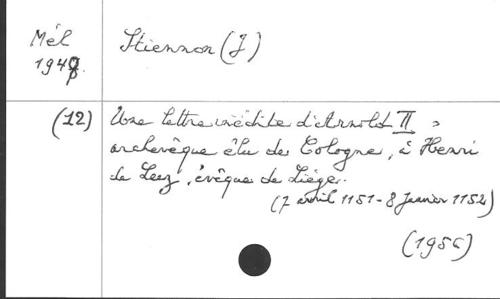 Mél Stiennon (J)
194
(12) Une lettre inédite d'Arnold II,
archevêque élu de Cologne, à Henri
de Leez, évêque de Liège.
(7 avril 1151 - 8 Janvier 1152)
(1956)